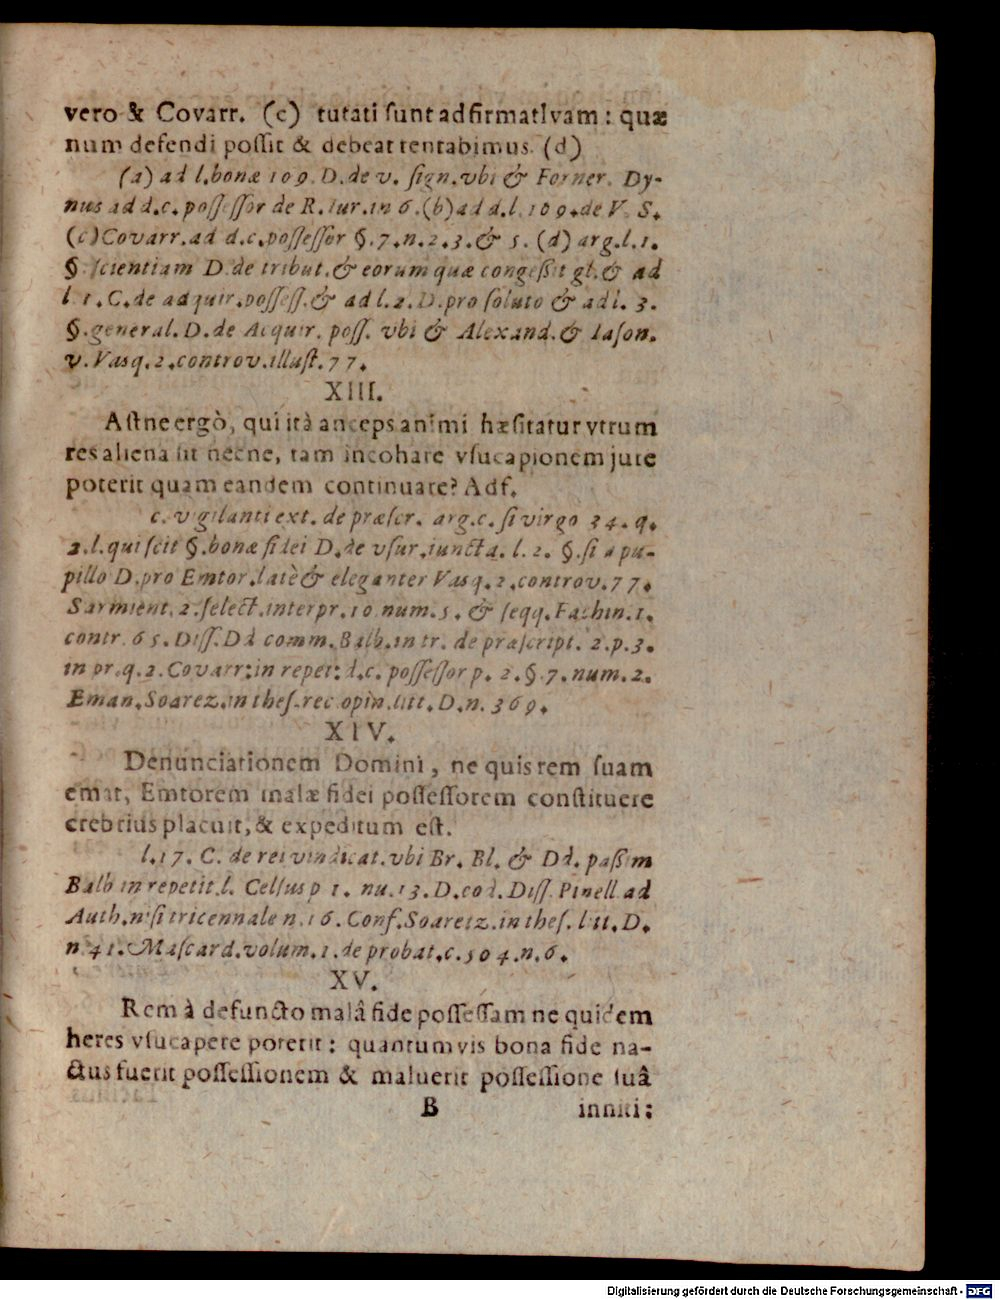 vero & Covarr. (c) tutati ſunt adfirmatIvam : quæ
num defendi poſſit & debeat tentabimus. (d)
(a) ad l. bonæ 109. D. de v. ſign. vbi & Forner. Dy-
nus ad d. c. poſſeſſor de R. Iur. in 6. (b) ad d. l. 109. de V. S.
(c) Covarr. ad d. c. poſſeſſor §. 7. n. 2. 3. & 5. (d) arg. l. 1.
§. ſcientiam D. de tribut. & eorum quæ congeßit gl. & ad
l. 1. C. de adquir. poſſeſſ. & ad l. 2. D. pro ſoluto & ad l. 3.
§. general. D. de Acquir. poſſ. vbi & Alexand. & Iaſon.
v. Vasq. 2. controv. illuſt. 77.
XIII.
Aſtne ergò, qui ità anceps animi hæſitatur vtrum
res aliena ſit necne, tam incohare vſucapionem jure
poterit quam eandem continuare? Adf.
c. vigilanti ext. de præſcr. arg. c. ſi virgo 34. q.
2. l. qui ſcit §. bonæ fidei D. de vſur. iuncta. l. 2. §. ſi a pu-
pillo D. pro Emtor. latè & eleganter Vasq. 2. controv. 77.
Sarmient. 2. ſelect. interpr. 10 num. 5. & ſeqq. Fachin. 1.
contr. 65. Diſſ. Dd comm. Balb. in tr. de præſcript. 2. p. 3.
in pr. q. 2. Covarr: in repet: d. c. poſſeſſor p. 2. §. 7. num. 2.
Eman. Soarez. in theſ. rec. opin. litt. D. n. 369.
XIV.
Denunciationem Domini, ne quis rem ſuam
emat, Emtorem malæ fidei poſſeſſorem conſtituere
crebrius placuit, & expeditum eſt.
l. 17. C. de rei vindicat. vbi Br. Bl. & Dd. paßim
Balb in repetit. l. Celſus p 1. nu. 13. D. cod. Diſſ. Pinell ad
Auth. niſi tricennale n. 16. Conf. Soaretz. in theſ. litt. D.
n. 41. Maſcard. volum. 1. de probat. c. 504. n. 6.
XV.
Rem à defuncto malâ fide poſſeſſam ne quidem
heres vſucapere poterit : quantumvis bona fide na-
ctus fuerit poſſeſſionem & maluerit poſſeſſione ſuâ
B inniti;
Digitalisierung gefördert durch die Deutsche Forschungsgemeinschaft - DFG